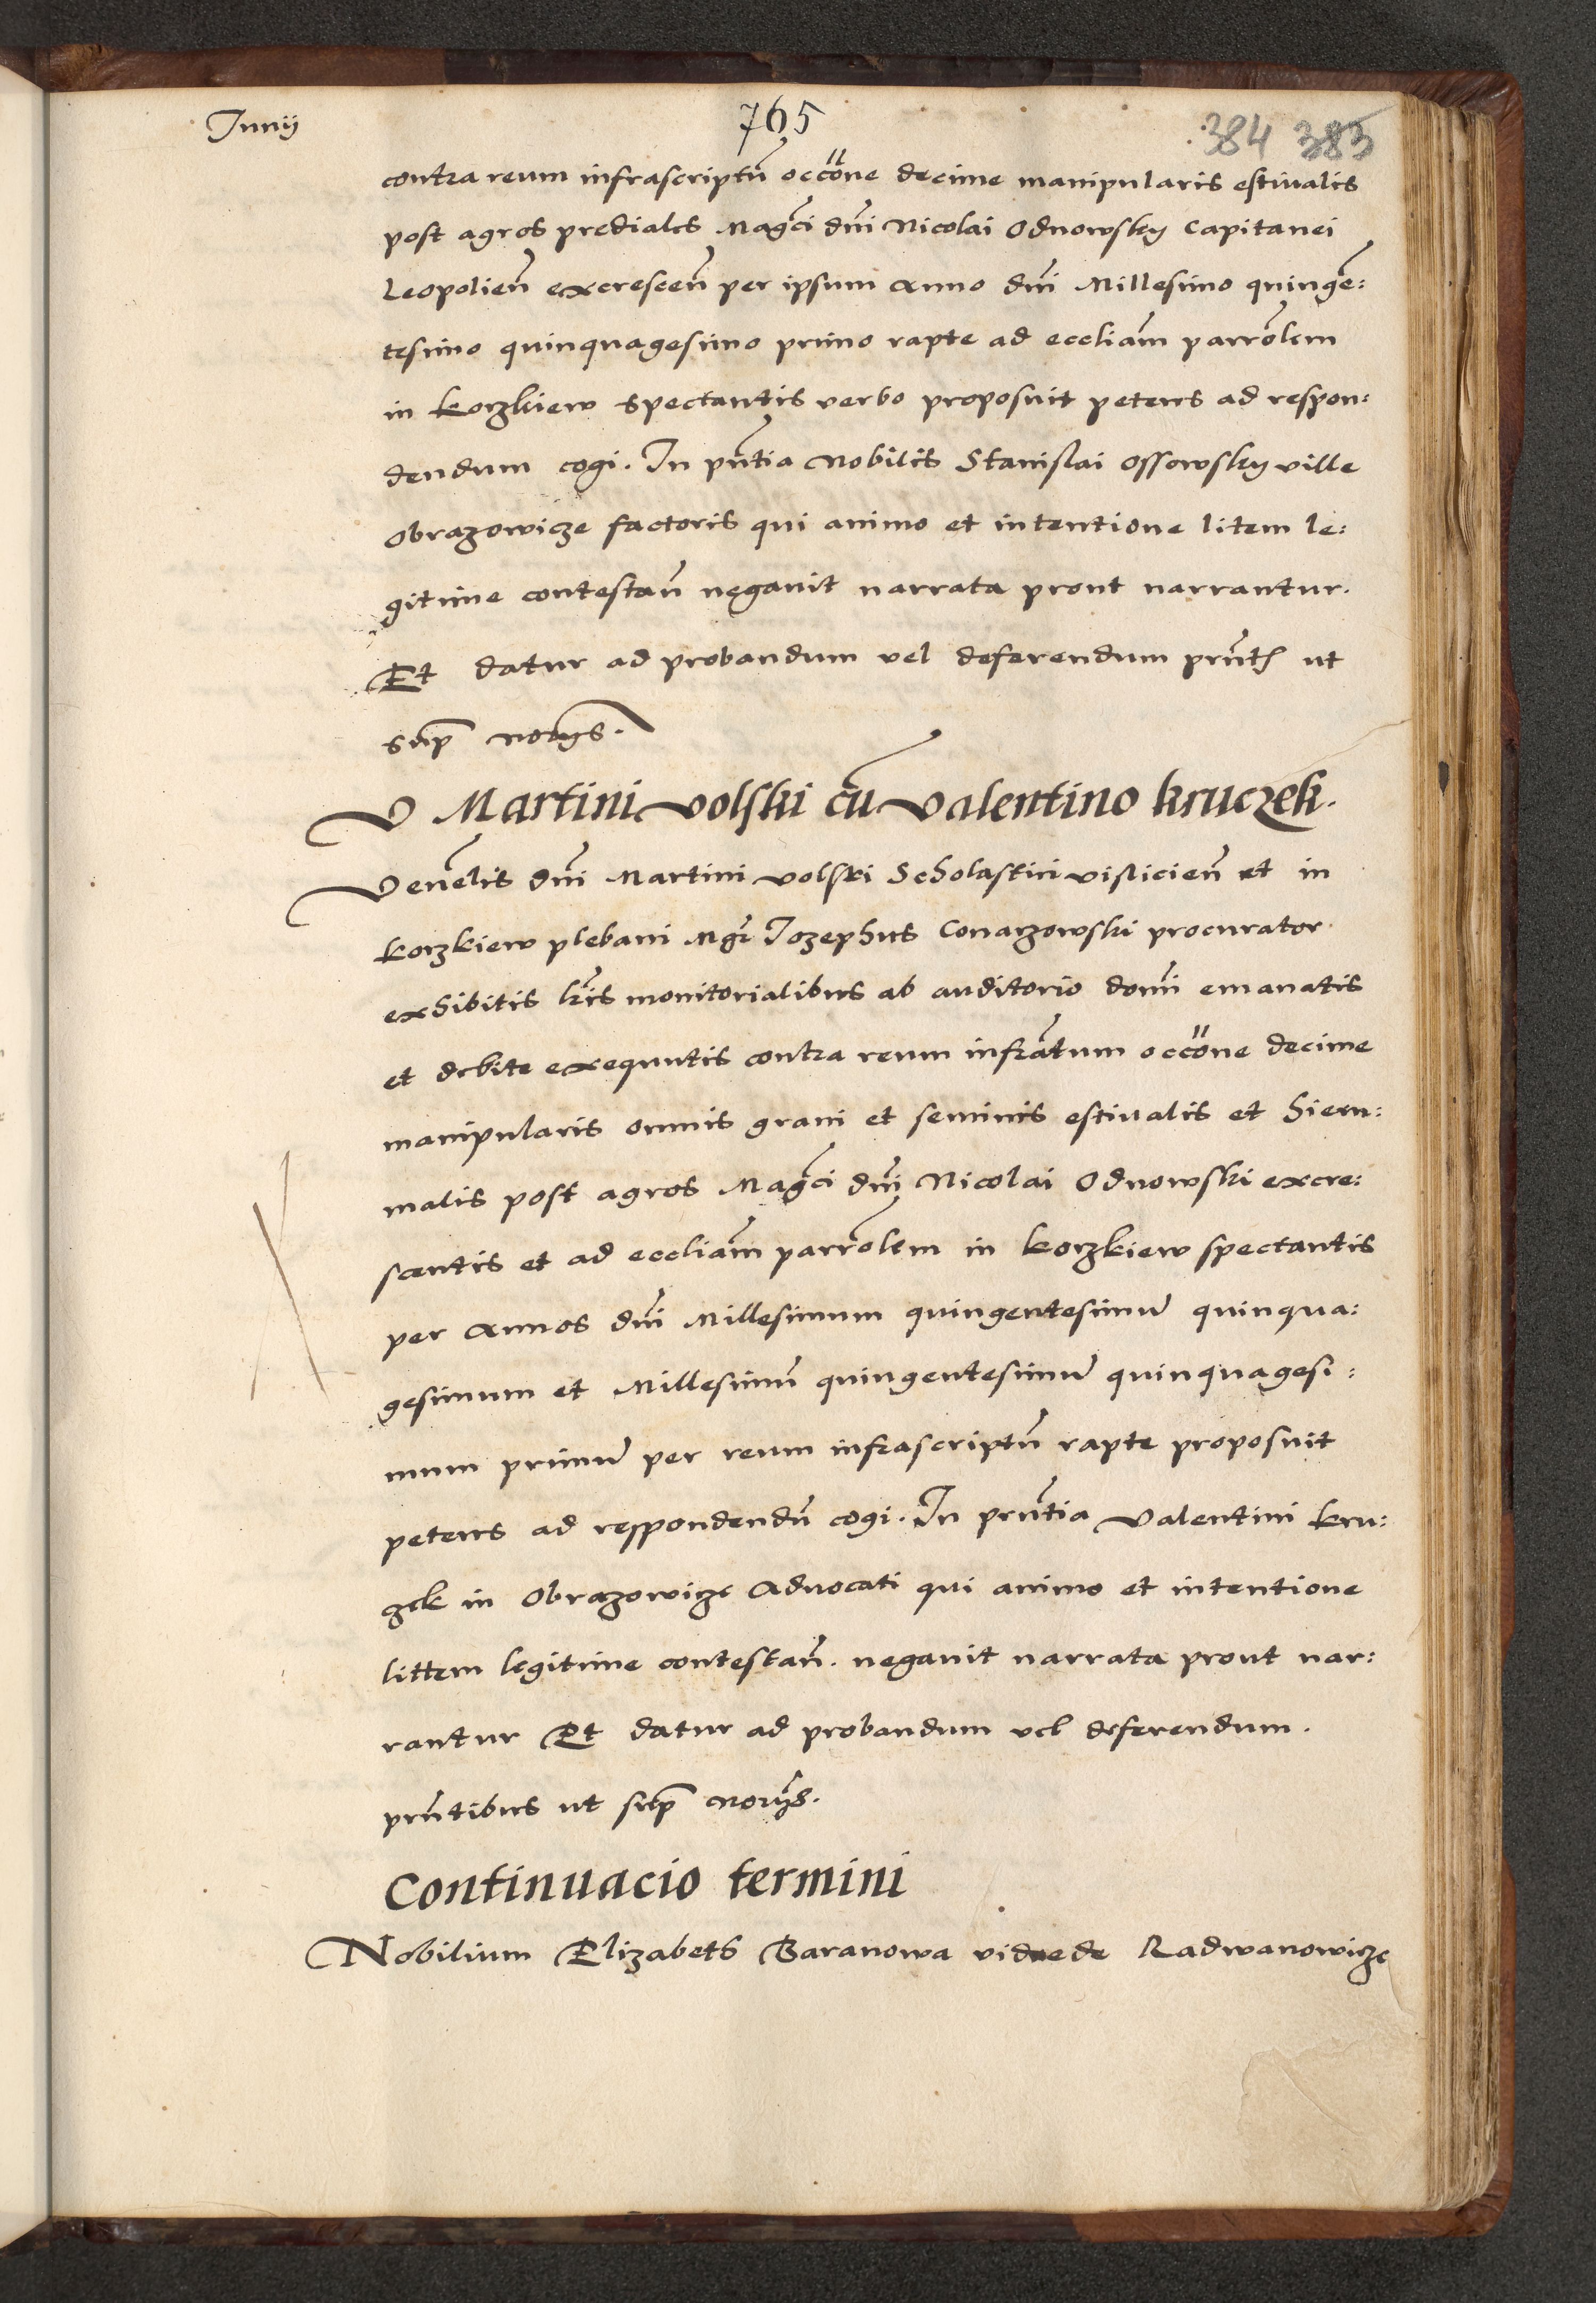 Junij
765
384 383
contra reum infrascriptũ occōne decime manipularis estiualis
post agros prediales Magci dni Nicolai Odnowsky Capitanei
Leopolien̄ excrescen̄ per ipsum anno dni Millesimo quingē:
tesimo quinquagesimo primo rapte ad eccliam parrolem
in korzkiew spectantis verbo proposuit petens ad respon:
dendum cogi. In pn̄tia Nobilis Stanislai Ossowsky ville
Obrazowicze factoris qui animo et intentione litem le:
gitime contestan̄ negauit narrata prout narrantur.
Et datur ad probandum vel deferendum ut
sup
V Martini volski cū valentino kruczek.
Venelis dni Martini volski Scholastici vislicien̄ et in
korzkiew plebani Mgr Jozephus Conarzowski procurator
exhibitis lr̄is monitorialibus ab auditorio domi emanatis
et debite exequutis contra reum infratum occōne decime
manipularis omnis grani et seminis estiualis et hiem:
malis post agros Magci dni Nicolai Odnowski excre:
scentis et ad eccliam parrolem in korzkiew spectantis
per annos dni Millesimum quingentesimū quinqua:
gesimum et Millesimū quingentesimū quinquagesi:
mum primū per reum infrascriptū rapte proposuit
petens ad respondendū cogi. In prn̄tia valentini kru:
zek in Obrazowicze aduocati qui animo et intentione
littem legitime contestan̄. negauit narrata prout nar:
rantur Et datur ad probandum vel deferendum.
prn̄tibus ut sup
Continuacio termini
Nobilium Elizabeth Baranowa vidue de Radwanowicze